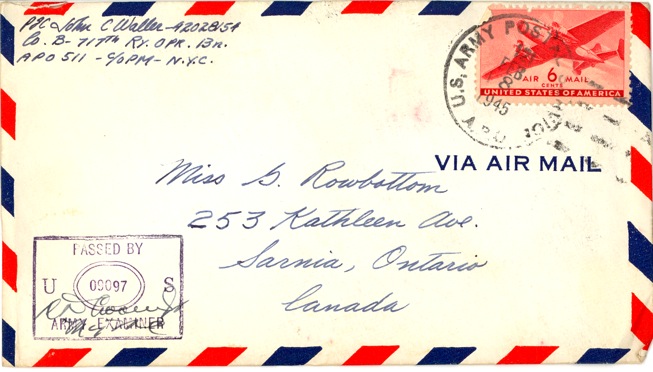 Pfc John C Waller - 42028154
Co. B- 717th Ry. OPR. Bn.
APO 511 - C/O PM - N.Y.C.
U.S. ARMY POSTAL
FEB
8
1945
A.P.O.
AIR 6 MAIL
CENTS
UNITED STATES OF AMERICA
VIA AIR MAIL
Miss G. Rowbottom
253 Kathleen Ave.
Sarnia, Ontario
Canada
PASSED BY
U 09097 S
ARMY EXAMINER